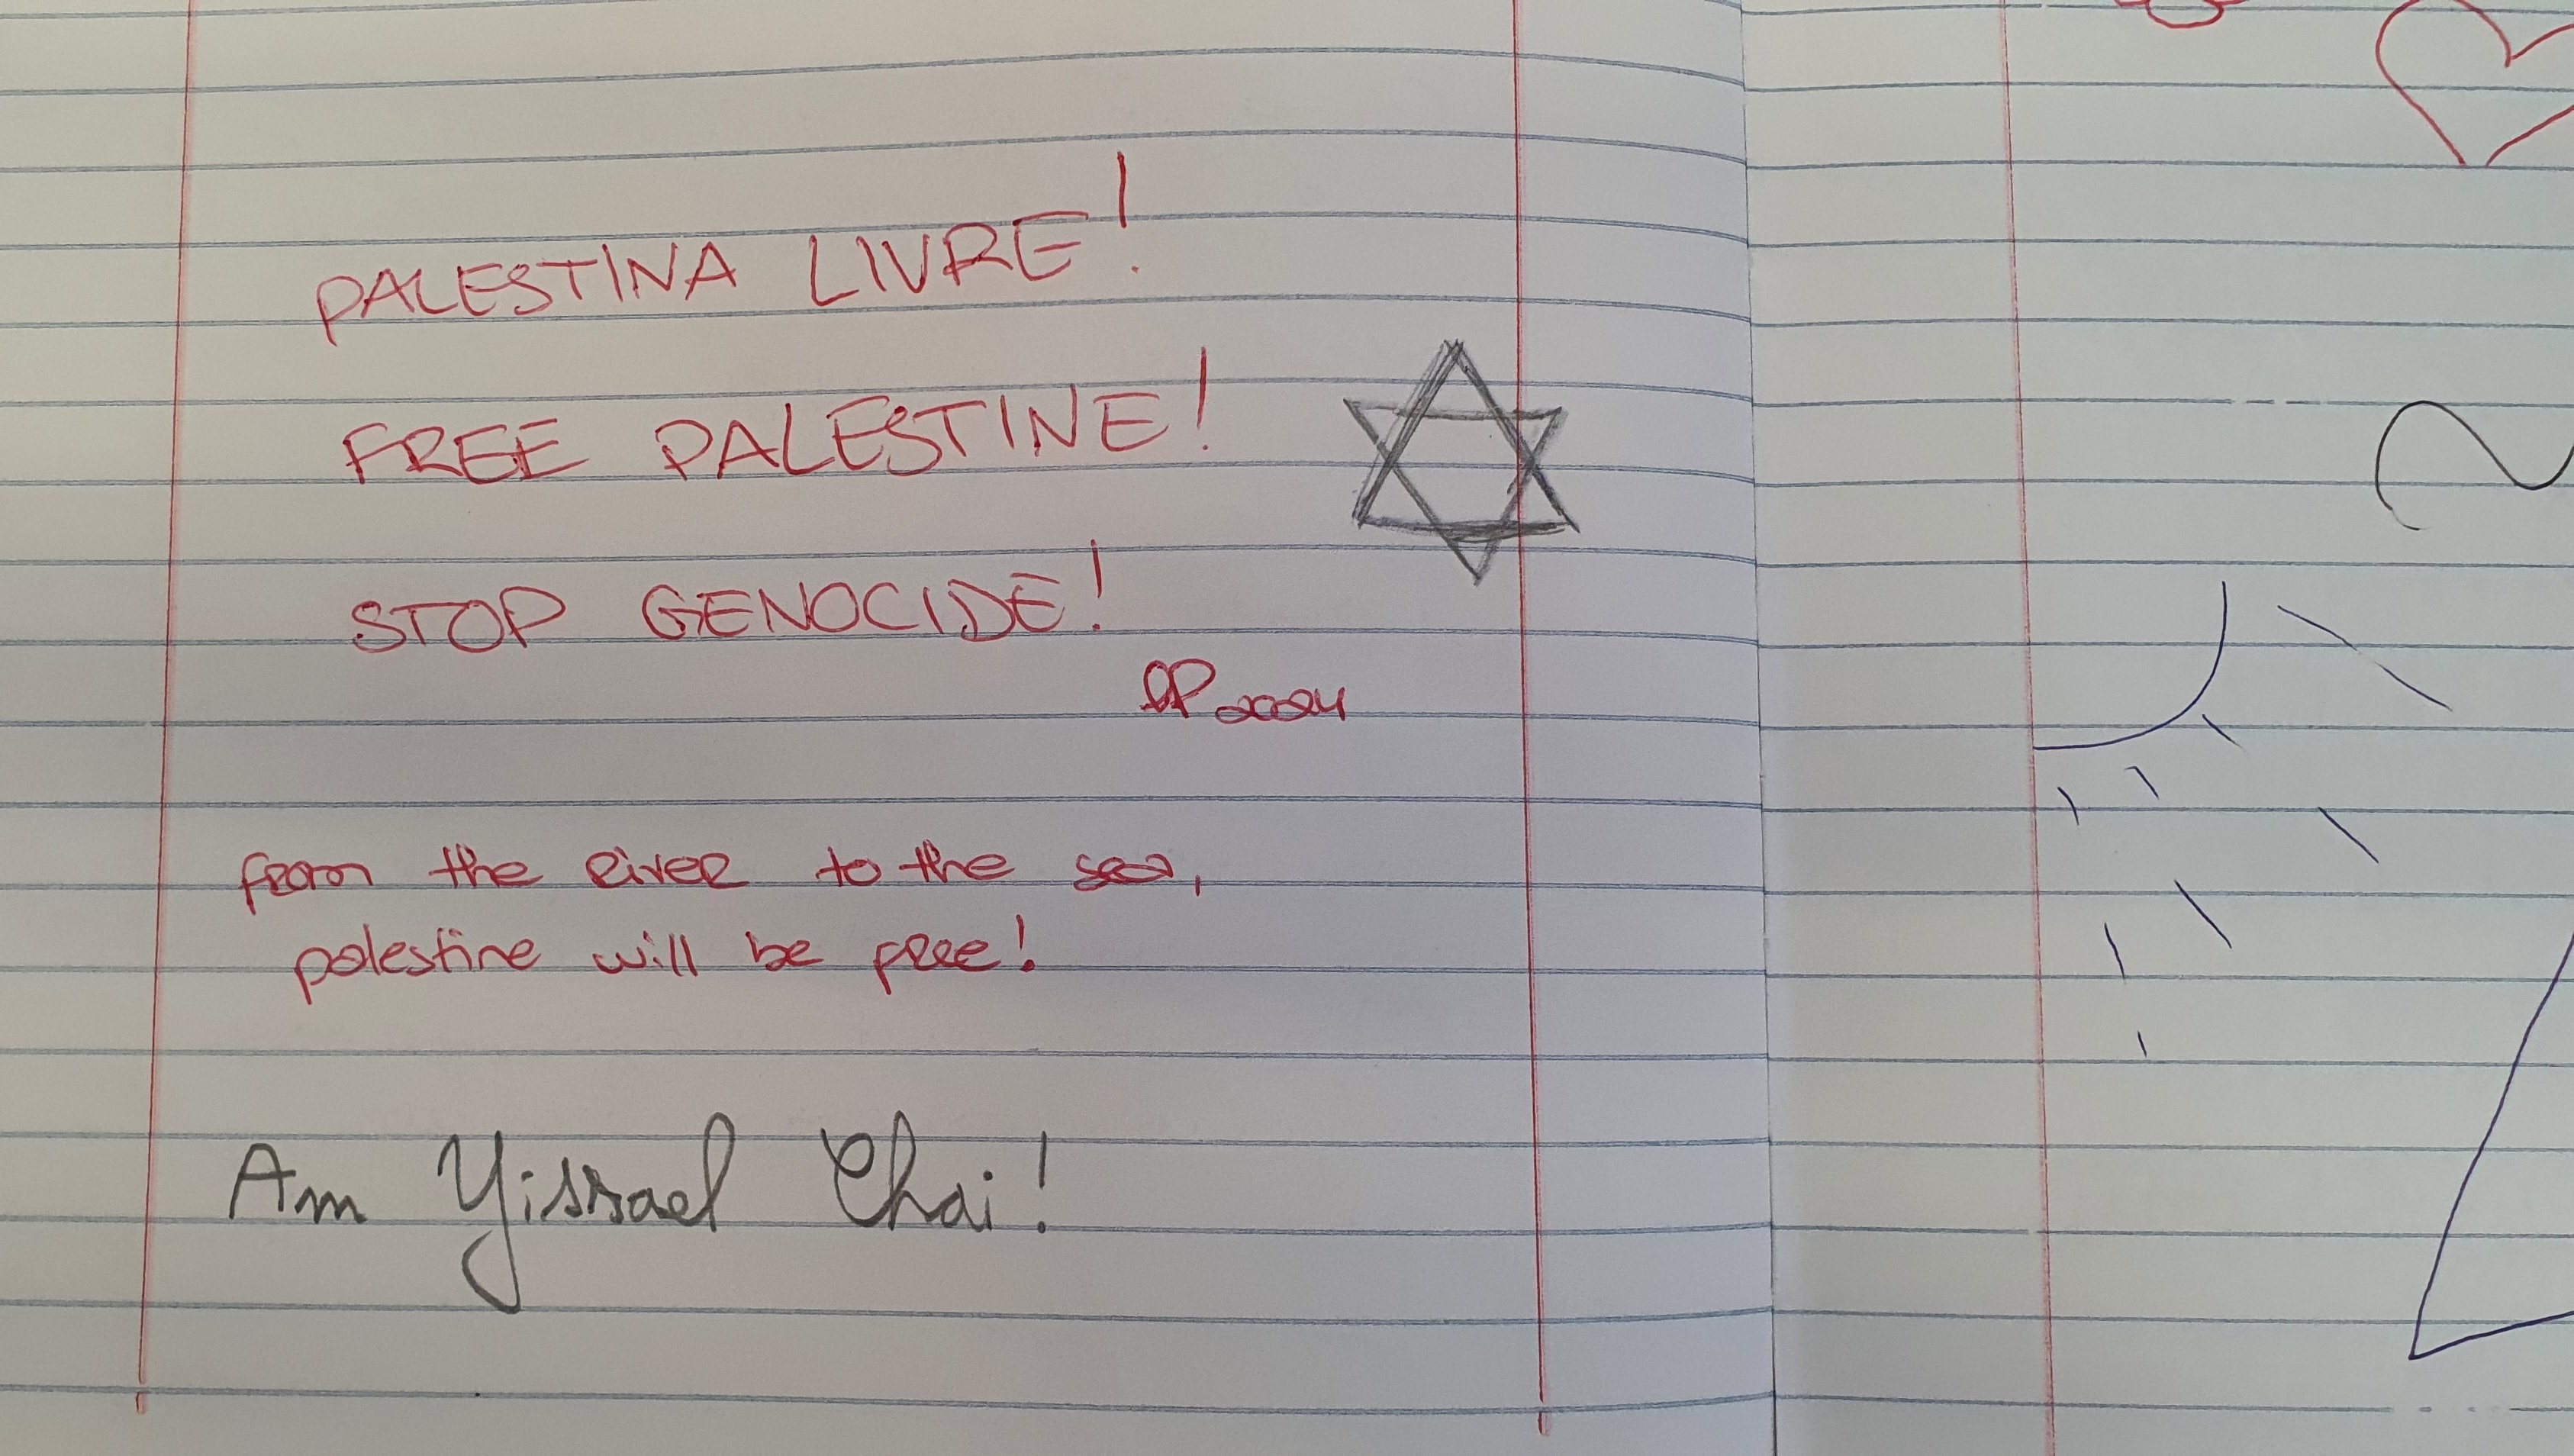 PALESTINA LIVRE!
FREE PALESTINE!
STOP GENOCIDE!
2024
from the river to the sea,
palestine will be free!
Am Yisrael Chai!